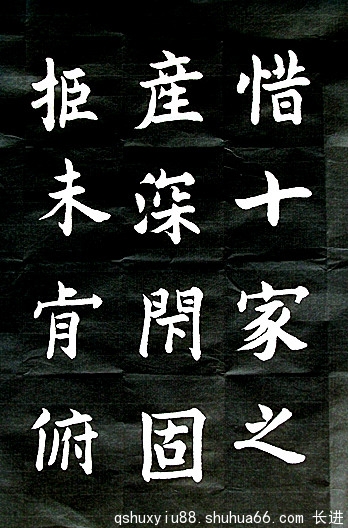 惜十家之
産深閇固
拒未肯俯
qshuxyiu88.shuhua66.com 长进